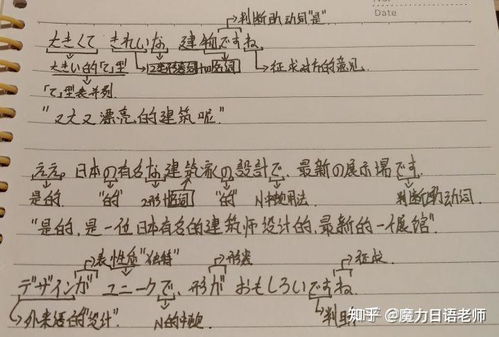 Date
判断助动词"是"
大きくて きれいな 建物ですね
大きい的「て」型 2类形容词+な+名词 征求对方的意见
「て」型表并列
"又大又漂亮的建筑呢"
ええ、日本の有名な建築家の設計で、最新の展示場です
是的 "的" 2形 名词 "的" N中顿用法 判断助动词
"是的,是一位日本有名的建筑师设计的,最新的一个展馆"
表性质"独特" 形状 征求
デザインが ユニークで、形が おもしろいですね
外来语的"设计" N的中顿 判断
知乎 @魔力日语老师